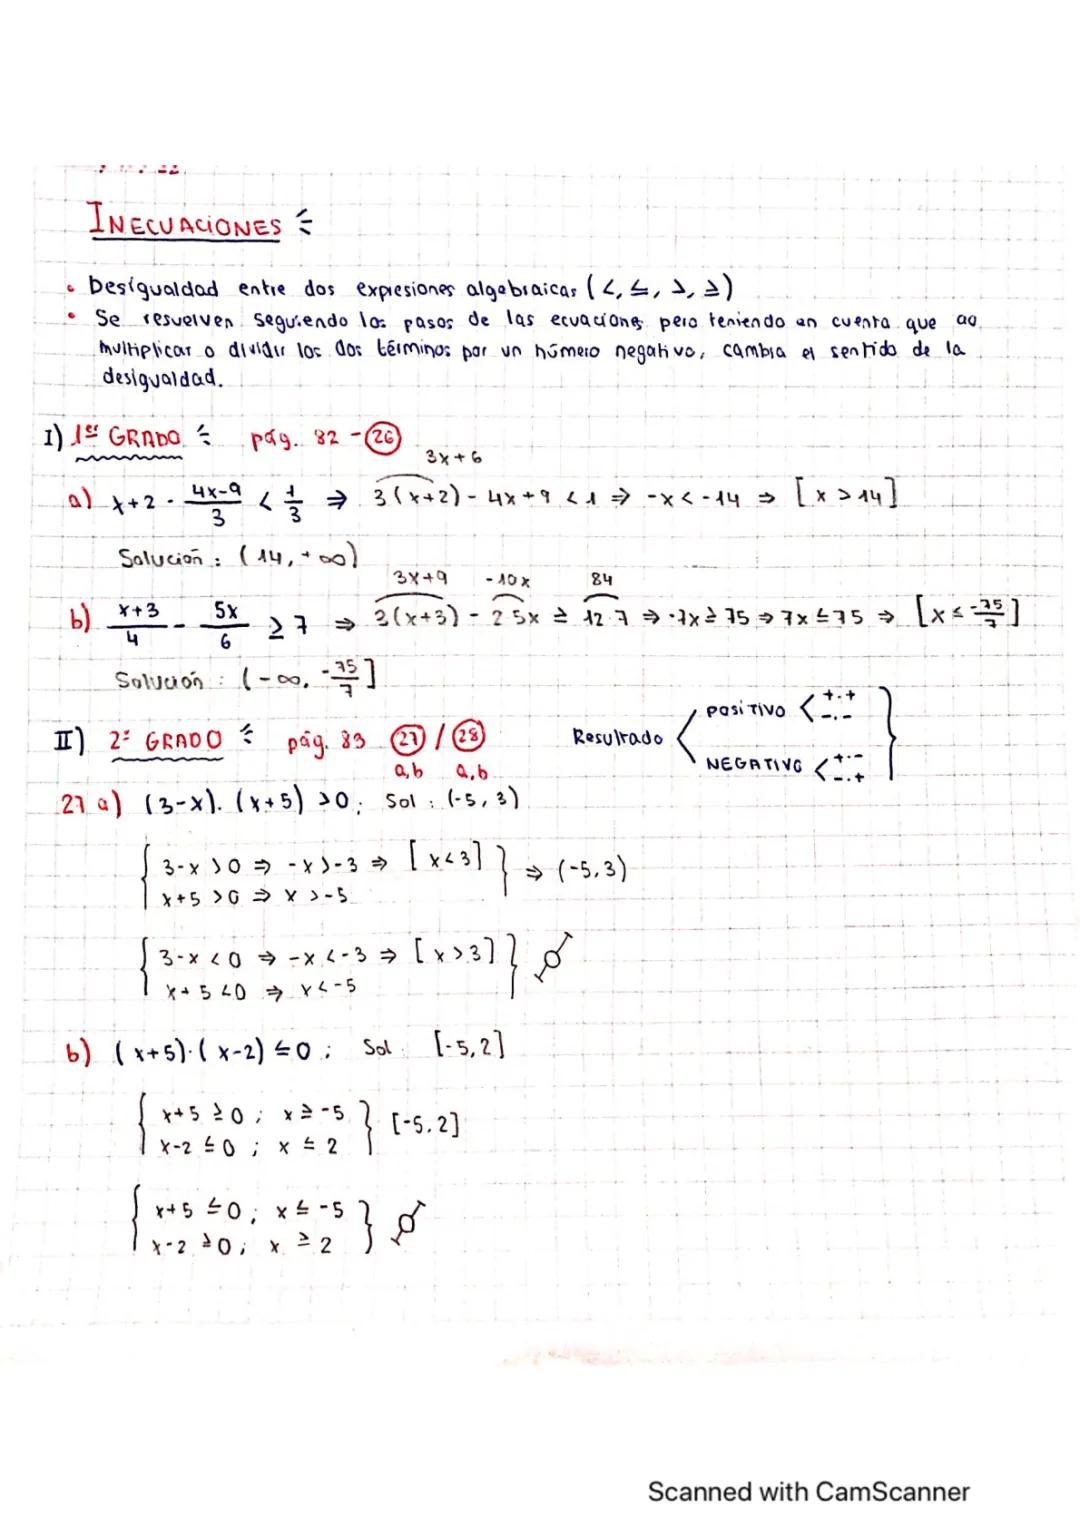 INECUACIONES
• Desigualdad entre dos expresiones algebraicas (<, ≤, >, ≥)
• Se resuelven siguiendo los pasos de las ecuaciones pero teniendo en cuenta que ao
multiplicar o dividir los dos términos por un número negativo, cambia el sentido de la
desigualdad.
I) 1er GRADO pág. 82 - 26
3x+6
a) x+2 - 4x-9/3 < 1/3 ⇒ 3(x+2) - 4x+9 < 1 ⇒ -x < -14 ⇒ [x > 14]
Solución : (14, +∞)
3x+9 -10x 84
b) x+3/4 - 5x/6 ≥ 7 ⇒ 3(x+3) - 2·5x ≥ 12·7 ⇒ -7x ≥ 75 ⇒ 7x ≤ 75 ⇒ [x ≤ -75/7]
Solución : (-∞, -75/7]
II) 2º GRADO pág. 83 27 / 28
a,b a,b
Resultado
POSITIVO < +·+
-·-
NEGATIVO < +·-
-·+
27 a) (3-x)·(x+5) > 0; Sol : (-5, 3)
{ 3-x > 0 ⇒ -x > -3 ⇒ [x < 3] } ⇒ (-5,3)
x+5 > 0 ⇒ x > -5
{ 3-x < 0 ⇒ -x < -3 ⇒ [x > 3] } ∅
x+5 < 0 ⇒ x < -5
b) (x+5)·(x-2) ≤ 0; Sol: [-5,2]
{ x+5 ≥ 0; x ≥ -5 } [-5,2]
x-2 ≤ 0; x ≤ 2
{ x+5 ≤ 0; x ≤ -5 } ∅
x-2 ≥ 0; x ≥ 2
Scanned with CamScanner